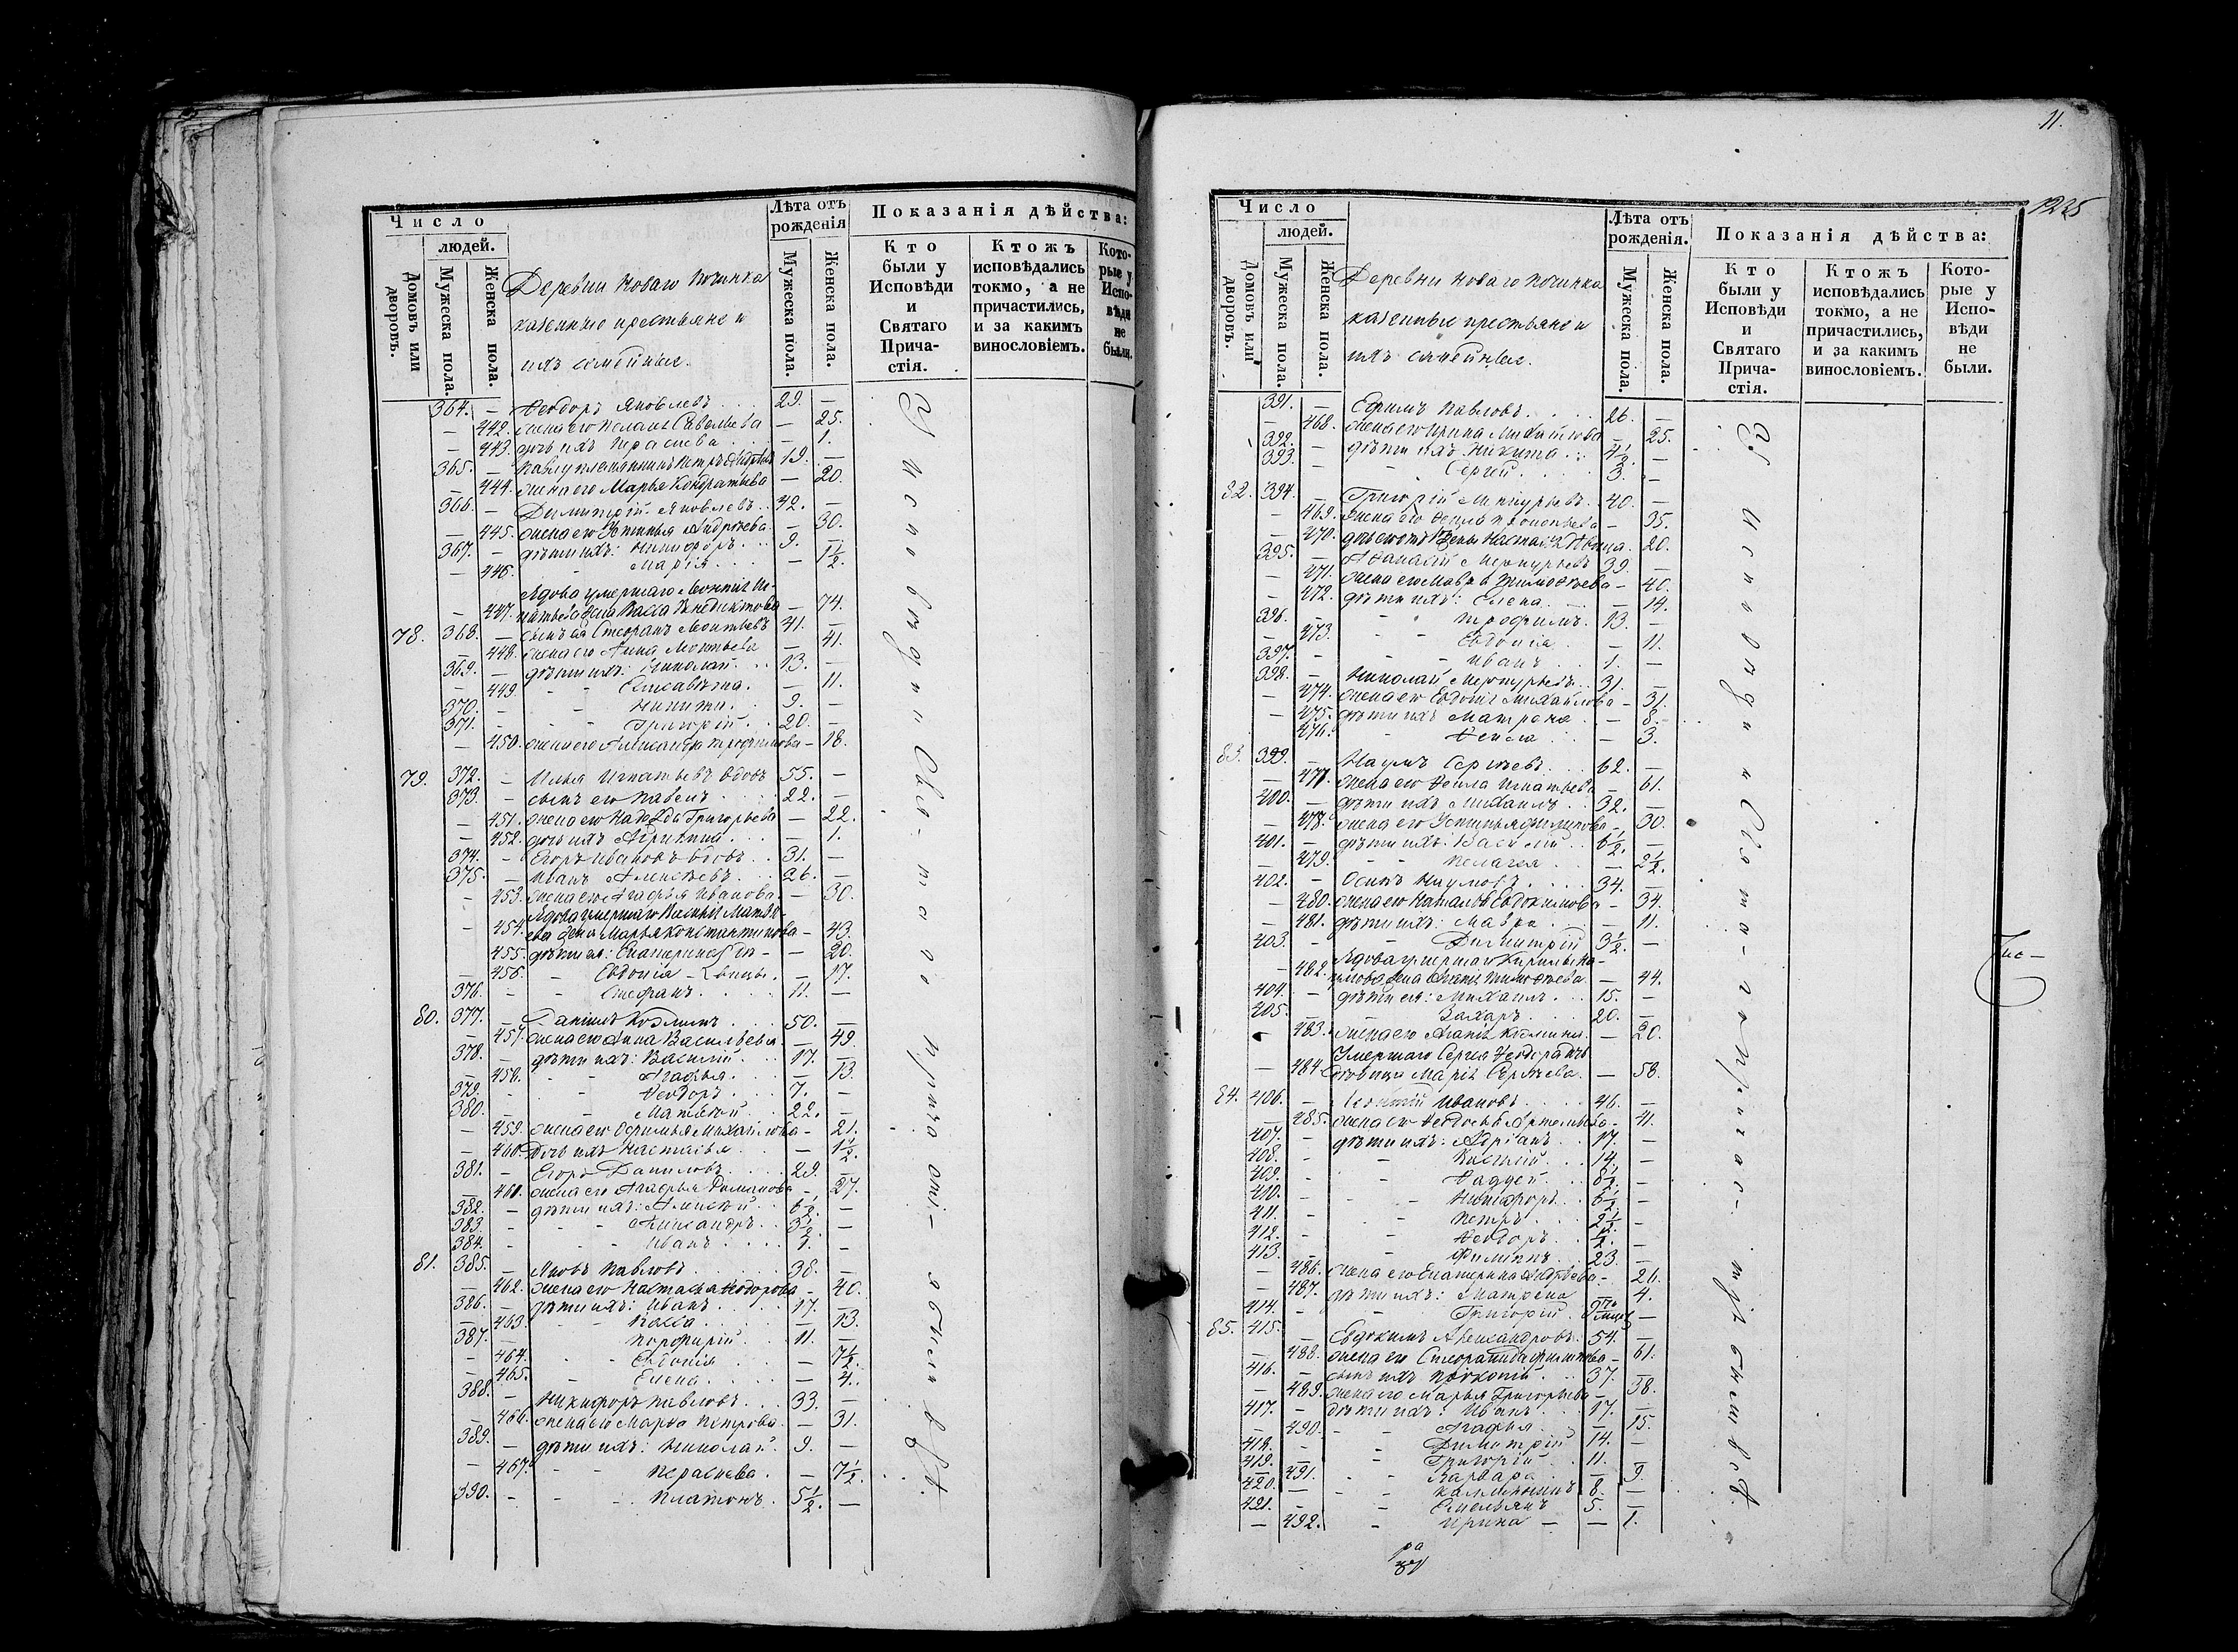 Число
людей.
Домовъ или дворовъ.
Мужеска пола.
Женска пола.
Деревни Новаго Починка
казенные крестьяне и
ихъ семейныя.
Лѣта отъ рожденія
Мужеска пола.
Женска пола.
Показанія дѣйства:
Кто были у Исповѣди и Святаго Причастія.
Ктожъ исповѣдались токмо, а не причастились, и за какимъ винословіемъ.
Которые у Исповѣди не были.
364. — Ѳеодоръ Яковлевъ 29. —
— 442. жена его Савельева — 25.
— 443. дочь ихъ — 1.
365. — Петръ 19. —
— 444. жена его Марья Кондратьева — 20.
366. — Димитрій Яковлевъ 42. —
— 445. жена его Устинья Андреева — 30.
367. — дѣти ихъ: Никифоръ 9. —
— 446. Марія — 1½.
Вдова умершаго Леонтія Иг-
— 447. натьева жена Васса Венедиктова — 74.
78. 368. — сынъ ея Стефанъ Леонтьевъ 41. —
— 448. жена его Анна — 41.
369. — дѣти ихъ: Николай 13. —
— 449. Елисавета — 11.
370. — Никита 9. —
371. — Григорій 20. —
— 450. жена его Александра Трофимова — 18.
79. 372. — Илья Игнатьевъ вдовъ 55. —
373. — сынъ его Павелъ 22. —
— 451. жена его Надежда Григорьева — 22.
— 452. дочь ихъ — 1.
374. — Егоръ Ивановъ вдовъ 31. —
375. — Иванъ Алексѣевъ 26. —
— 453. жена его Агафья Иванова — 30.
Вдова умершаго Василія Матвѣ-
— 454. ева жена Марья Константинова — 43.
455. дѣти ея: Екатерина дѣ- — 20.
— 456. Евдокія вицы — 17.
376. — Стефанъ 11. —
80. 377. — Даніилъ Козминъ 50. —
— 457. жена его Анна Васильева — 49.
378. — дѣти ихъ: Василій 17. —
— 458. Агафья — 13.
379. — Ѳеодоръ 7. —
380. — Матвѣй 22. —
— 459. жена его Ефимья Михайлова — 21.
— 460. Дочь ихъ Настасья — 1½.
381. — Егоръ Даниловъ 29. —
— 461. жена его Агафья Романова — 27.
382. — дѣти ихъ: Алексѣй 6½. —
383. — Александръ 3½ —
384. — Иванъ 1. —
81. 385. — Яковъ Павловъ 38. —
— 462. жена его Настасья Ѳеодорова — 40.
386. — дѣти ихъ: Иванъ 17. —
— 463. Васса — 13.
387. — Порфирій 11. —
— 464. Евдокія — 7½.
— 465. Елена — 4.
388. — Никифоръ Павловъ 33. —
— 466. жена его Марѳа Петрова — 31.
389. — дѣти ихъ: Николай 9. —
— 467. — 7½.
390. — Платонъ 5½. —
11.
1235
Число
людей.
Домовъ или дворовъ.
Мужеска пола.
Женска пола.
Деревни Новаго Починка
казенные крестьяне и
ихъ семейныя.
Лѣта отъ рожденія.
Мужеска пола.
Женска пола.
Показанія дѣйства:
Кто были у Исповѣди и Святаго Причастія.
Ктожъ исповѣдались токмо, а не причастились, и за какимъ винословіемъ.
Которые у Исповѣди не были.
391. — Ефимъ Павловъ 26. —
— 468. жена его Ирина Михайлова — 25.
392. — дѣти ихъ Никита 4½. —
393. — Сергій 3. —
82. 394. — Григорій Меркурьевъ 40. —
— 469. жена его Ѳекла Прокопьева — 35.
— 470. 20.
395. — Аѳанасій Меркурьевъ 39. —
— 471. жена его Мавра Тимоѳеева — 40.
— 472. дѣти ихъ: Елена — 14.
396. — Трофимъ 13. —
— 473. Евдокія — 11.
397. — Иванъ 1. —
398. — Николай Меркурьевъ 31. —
— 474. жена его Евдокія Михайлова — 31.
— 475. дѣти ихъ Матрона — 8.
— 476. Ѳекла — 3.
83. 399. — Наумъ Сергѣевъ 62. —
— 477. жена его Ѳекла Игнатьева — 61.
400. — дѣти ихъ Михаилъ 32. —
— 478. жена его Устинья Филипова — 30.
401. — дѣти ихъ: Василій 6½. —
— 479. Пелагея — 2½.
402. — Осипъ Наумовъ 34. —
— 480. жена его Наталья Евдокимова — 34.
— 481. дѣти ихъ: Мавра — 11.
403. — Димитрій 3½. —
Вдова умершаго Кирила На-
— 482. умова жена Агапія Тимоѳеева — 44.
404. — дѣти ея: Михаилъ 15. —
405. — Захаръ 20. —
483. жена его Агапія Козмина — 20.
Умершаго Сергея Ѳеодора дочь
— 484. дѣвица Марія Сергѣева — 58.
84. 406. — Леонтій Ивановъ 46. —
— 485. жена его Ѳедосья Артемьева — 41.
407. — дѣти ихъ: Адріанъ 17. —
408. — Василій 14. —
409. — Ѳаддей 8½. —
410. — Никифоръ 6½ —
411. — Петръ 2½ —
412. — Ѳеодоръ ½. —
413. — Филиппъ 23. —
— 486. жена его Екатерина Андреева — 26.
— 487. дѣти ихъ: Матрена — 4.
414. — Григорій —
85. 415. — Евдокимъ Александровъ 54. —
— 488. жена его Степанида Филипова — 61.
416. — сынъ ихъ Прокопій 37. —
— 489. жена его Марья Григорьева — 38.
417. — дѣти ихъ: Иванъ 17. —
— 490. Агафья — 15.
418. — Димитрій 14. —
419. — Григорій 11. —
— 491. Варвара — 9.
420. — Каллиникъ 8. —
421. — Емельянъ 5. —
— 492. Ирина — 1.